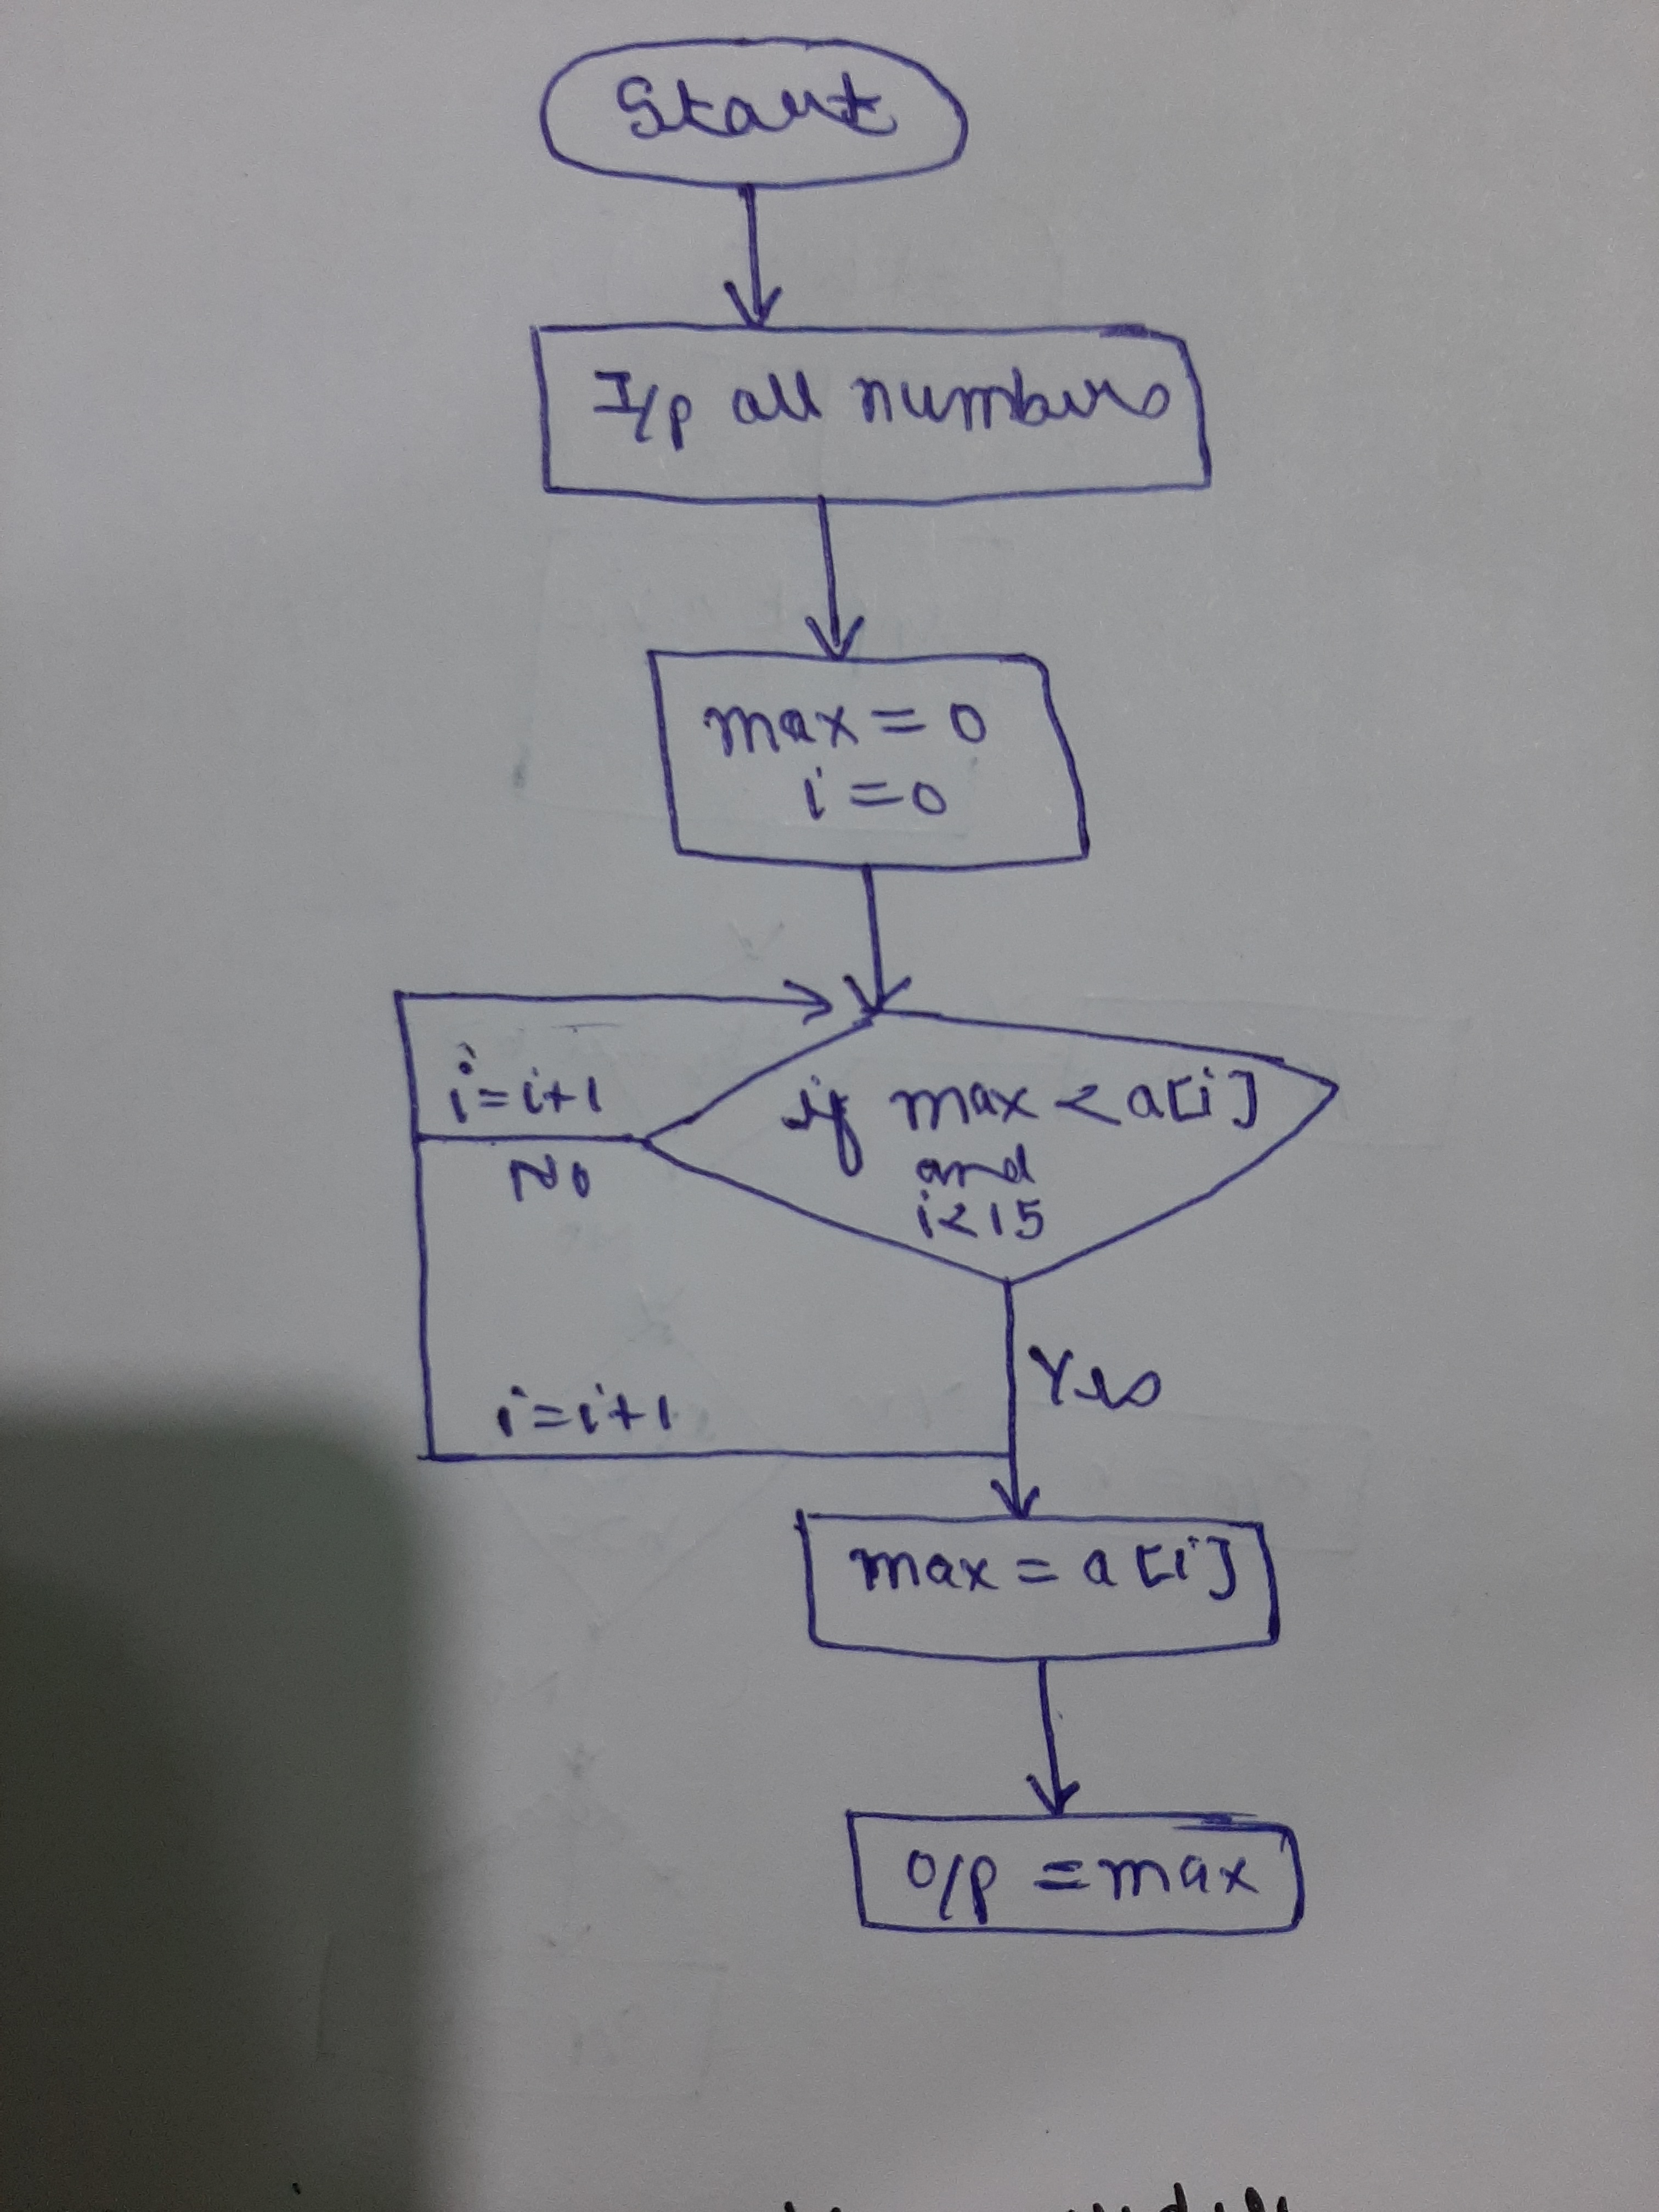 Start
I/p all numbers
max = 0
i = 0
i = i+1
if max < a[i]
and
i < 15
No
Yes
i = i+1
max = a[i]
o/p = max